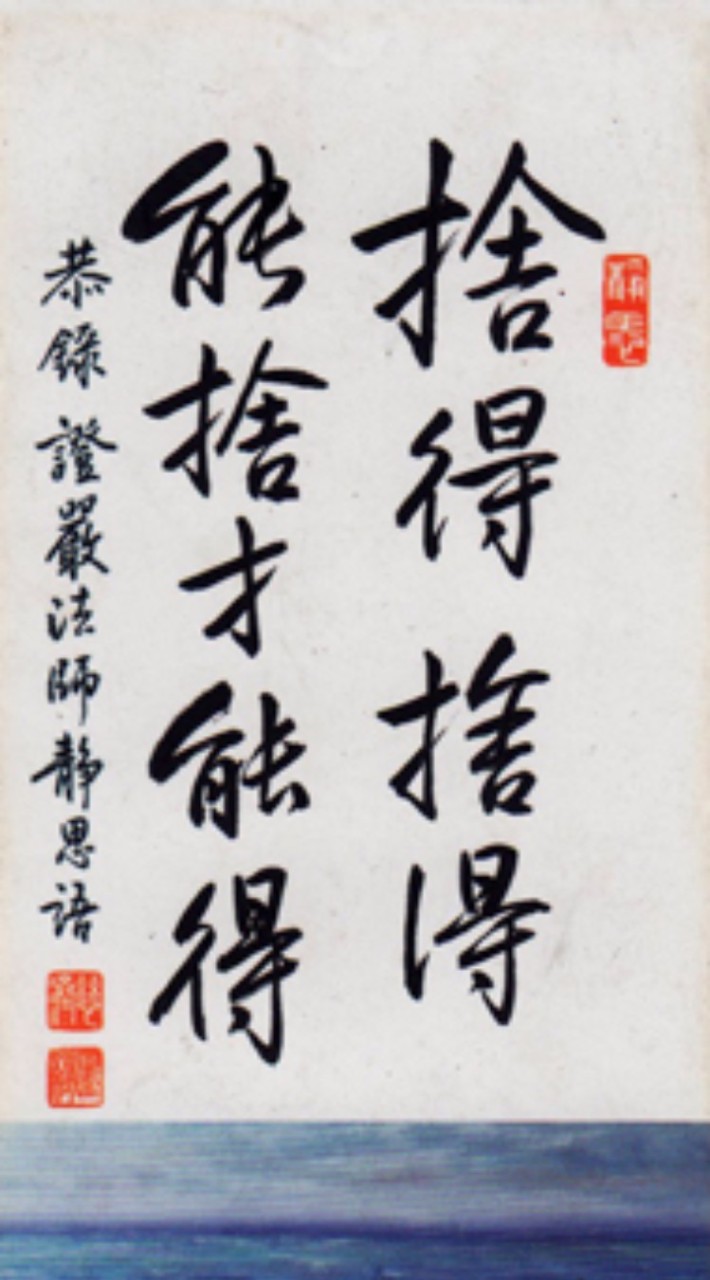 捨得捨得
能捨才能得
恭錄證嚴法師靜思語
靜思